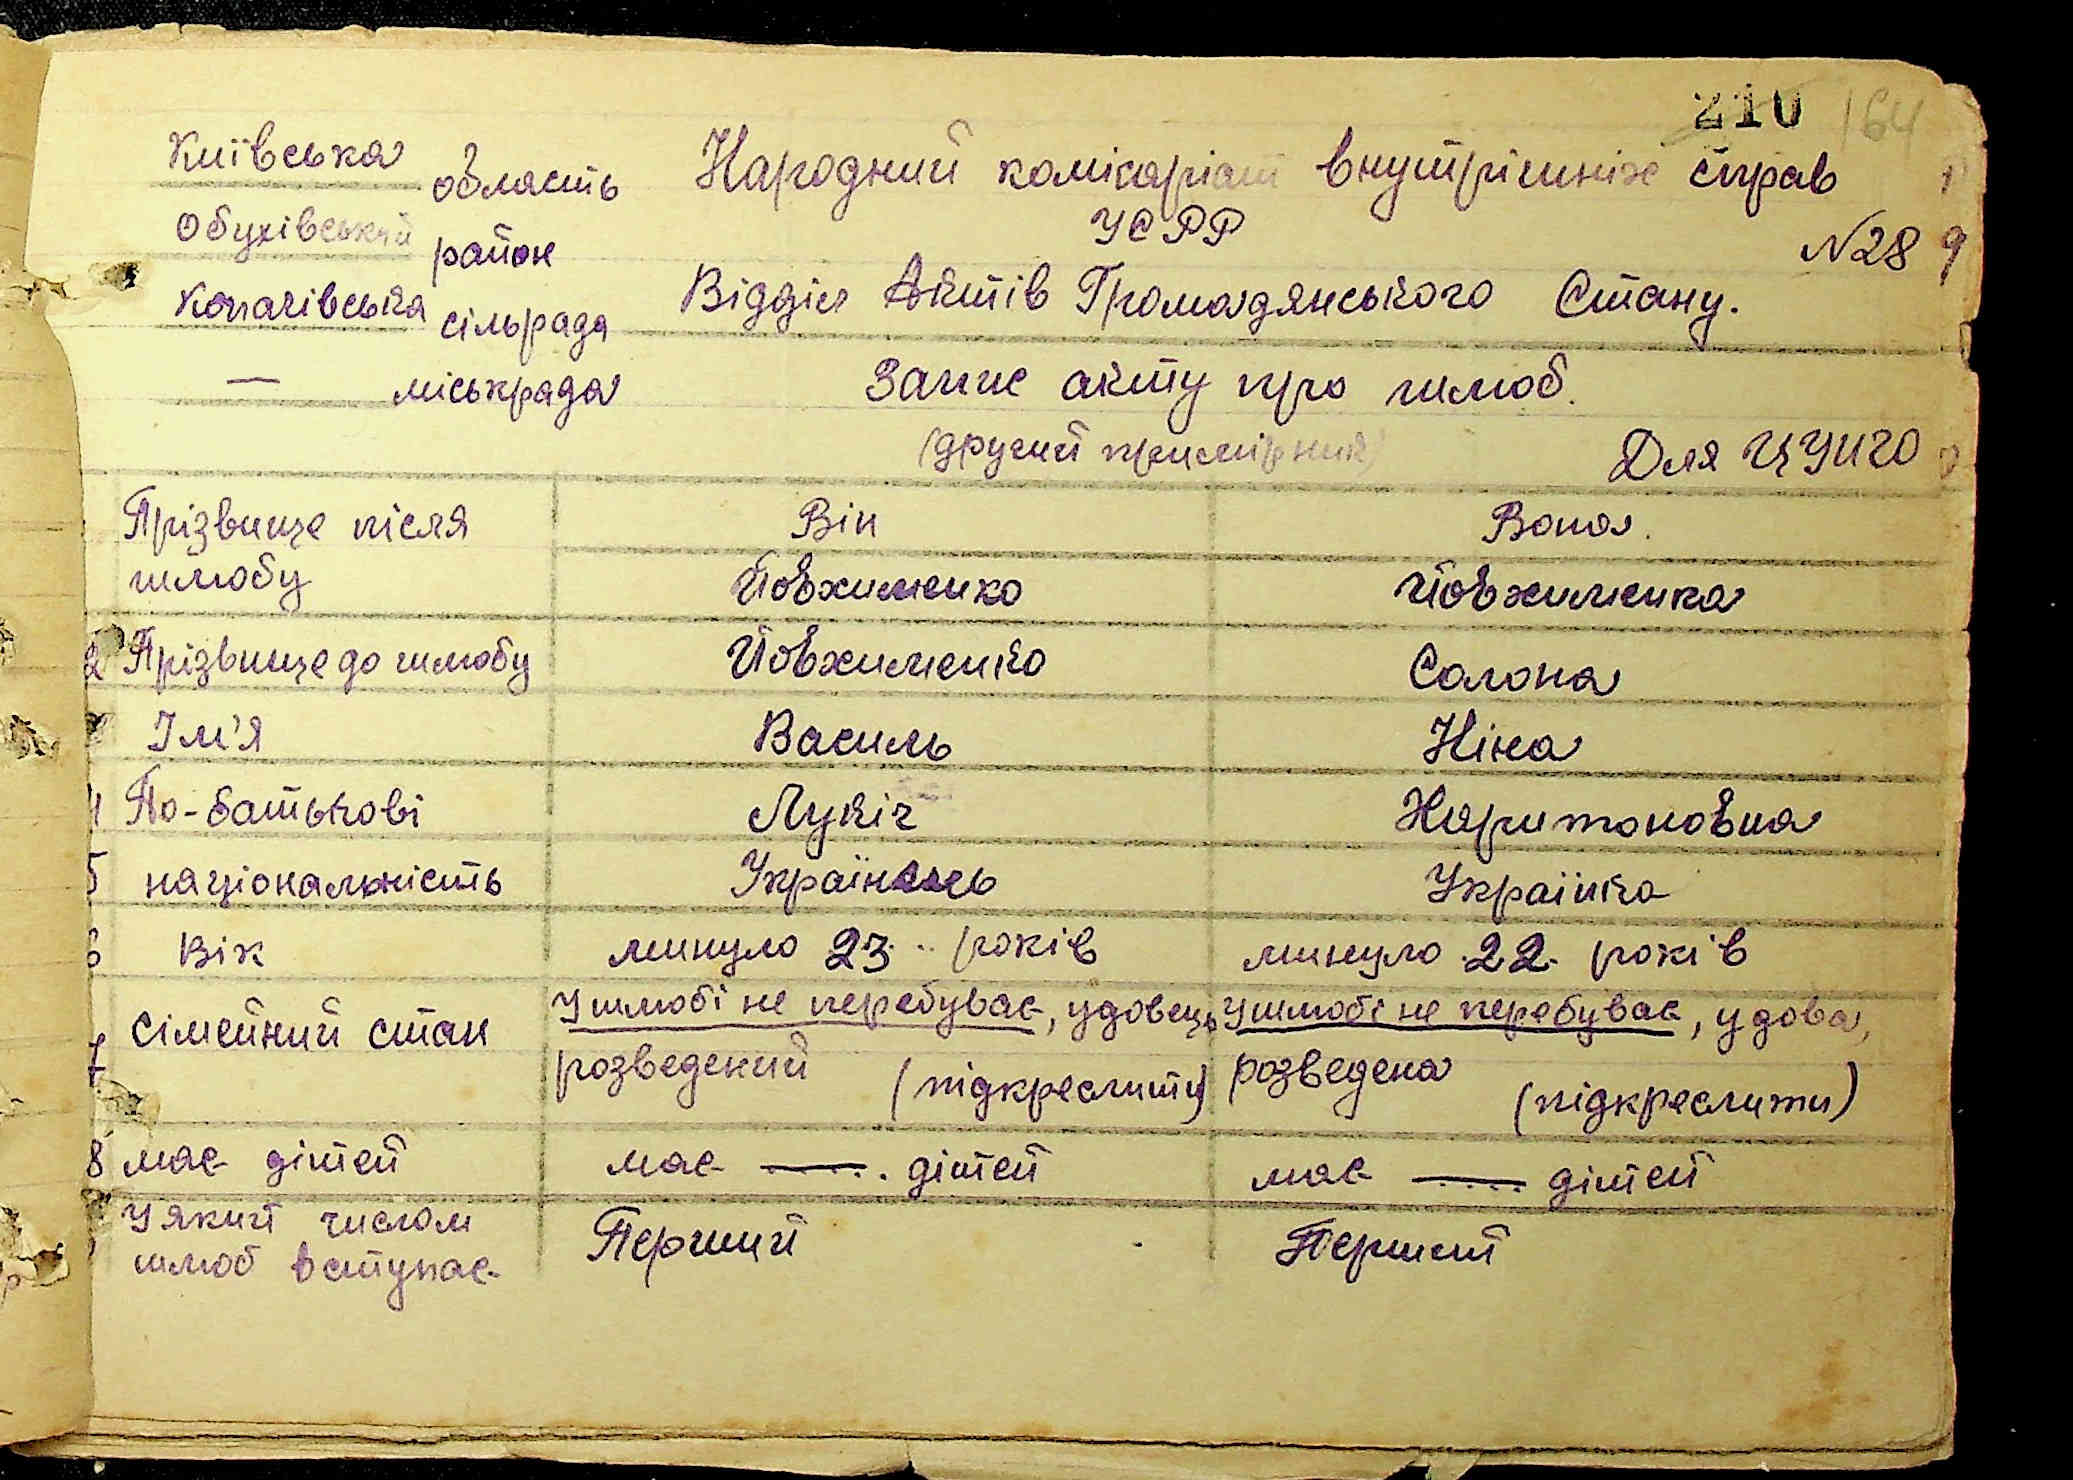 210 164
Київська область
Обухівський район
Копачівська сільрада
— міськрада
Народний комісаріат внутрішніх справ
УСРР
N28
Відділ Актів Громадянського Стану.
Запис акту про шлюб.
(другий примірник)
Для ЦУНГО
Прізвище після шлюбу
Він
Вона.
Йовхименко
Йовхименка
2 Прізвище до шлюбу
Йовхименко
Солона
Ім'я
Василь
Ніна
4 По-батькові
Лукіч
Харитоновна
5 національність
Українець
Українка
6 Вік
минуло 23 років
минуло 22 років
7 Сімейний стан
У шлюбі не перебуває, удовець
розведений (підкреслити)
У шлюбі не перебуває, удова,
розведена (підкреслити)
8 має дітей
має — дітей
має — дітей
У який числом
шлюб вступає
Перший
Перший